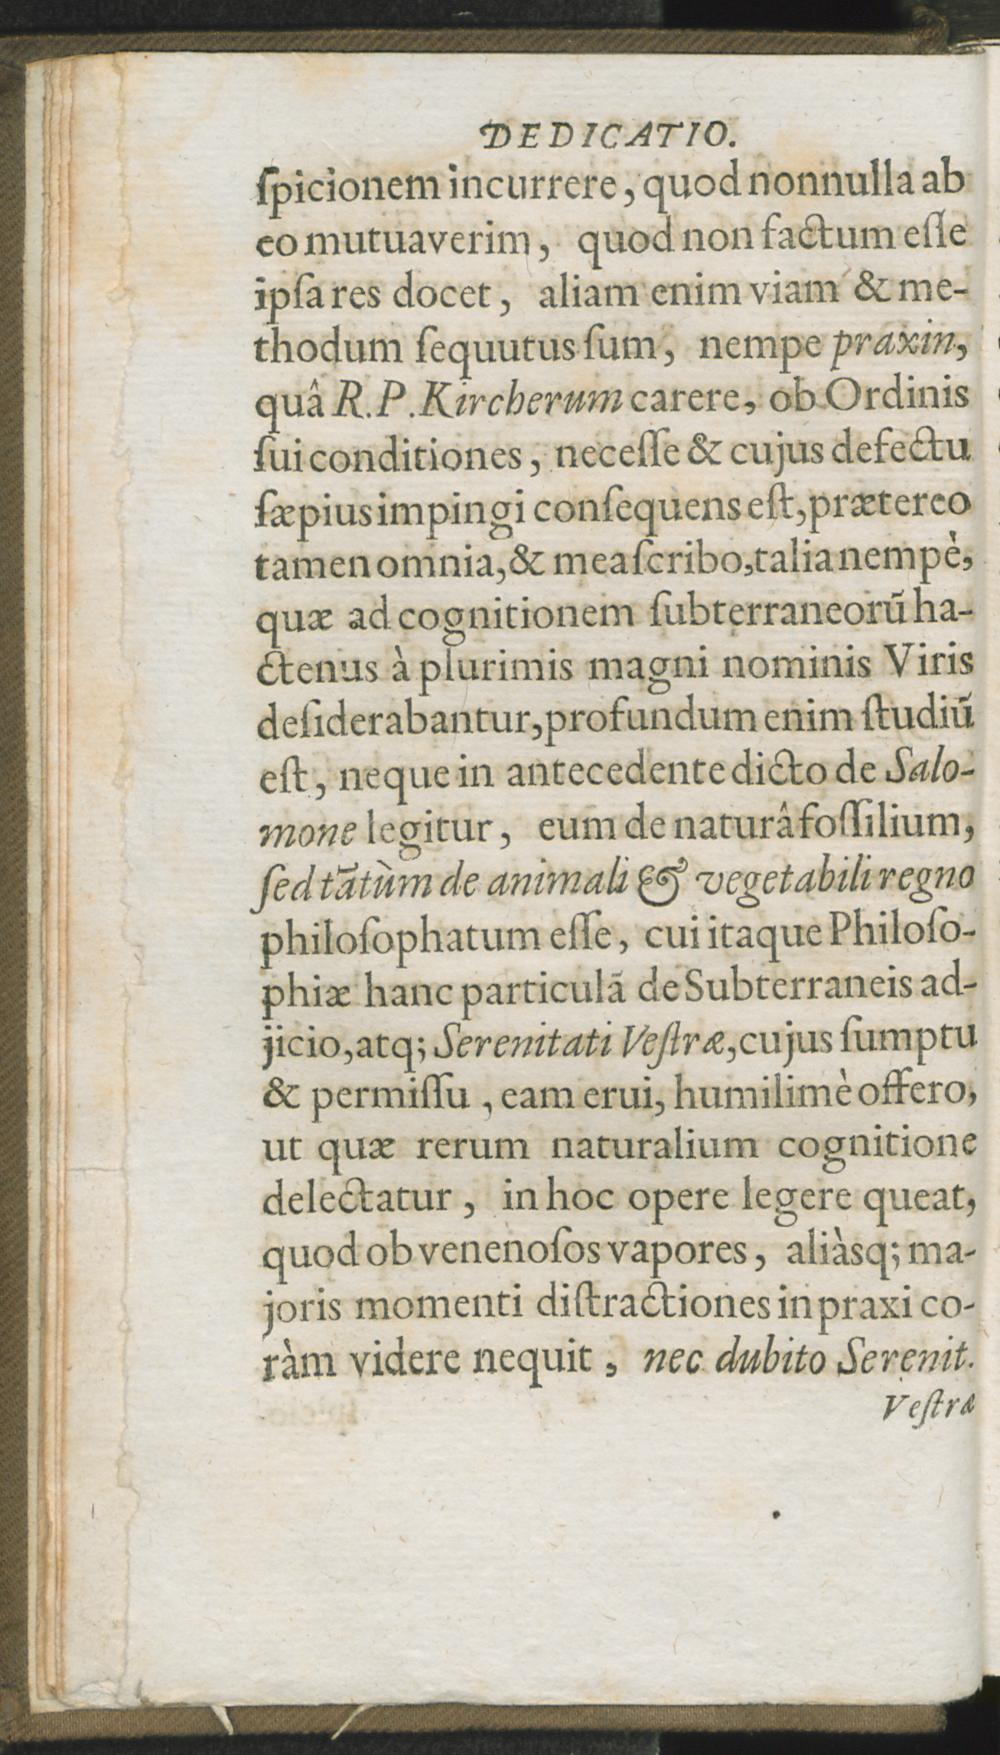 DEDICATIO.
ſpicionem incurrere, quod nonnulla ab
eo mutuaverim, quod non factum eſſe
ipſa res docet, aliam enim viam & me-
thodum ſequutus ſum, nempe praxin,
quâ R. P. Kircherum carere, ob Ordinis
ſui conditiones, neceſſe & cujus defectu
ſæpius impingi conſequens eſt, prætereo
tamen omnia, & mea ſcribo, talia nempè,
quæ ad cognitionem ſubterraneorũ ha-
ctenus à plurimis magni nominis Viris
deſiderabantur, profundum enim ſtudiũ
eſt, neque in antecedente dicto de Salo-
mone legitur, eum de naturâ foſſilium,
ſed tãtùm de animali & vegetabili regno
philoſophatum eſſe, cui itaque Philoſo-
phiæ hanc particulã de Subterraneis ad-
jicio, atq; Serenitati Veſtræ, cujus ſumptu
& permiſſu, eam erui, humilimè offero,
ut quæ rerum naturalium cognitione
delectatur, in hoc opere legere queat,
quod ob venenoſos vapores, aliàsq; ma-
joris momenti diſtractiones in praxi co-
ràm videre nequit, nec dubito Serenit.
Veſtræ